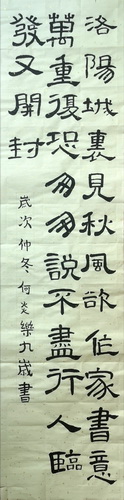 洛陽城裏見秋風欲作家書意
萬重復恐匆匆說不盡行人臨
發又開封
歲次仲冬何炎樂九歲書